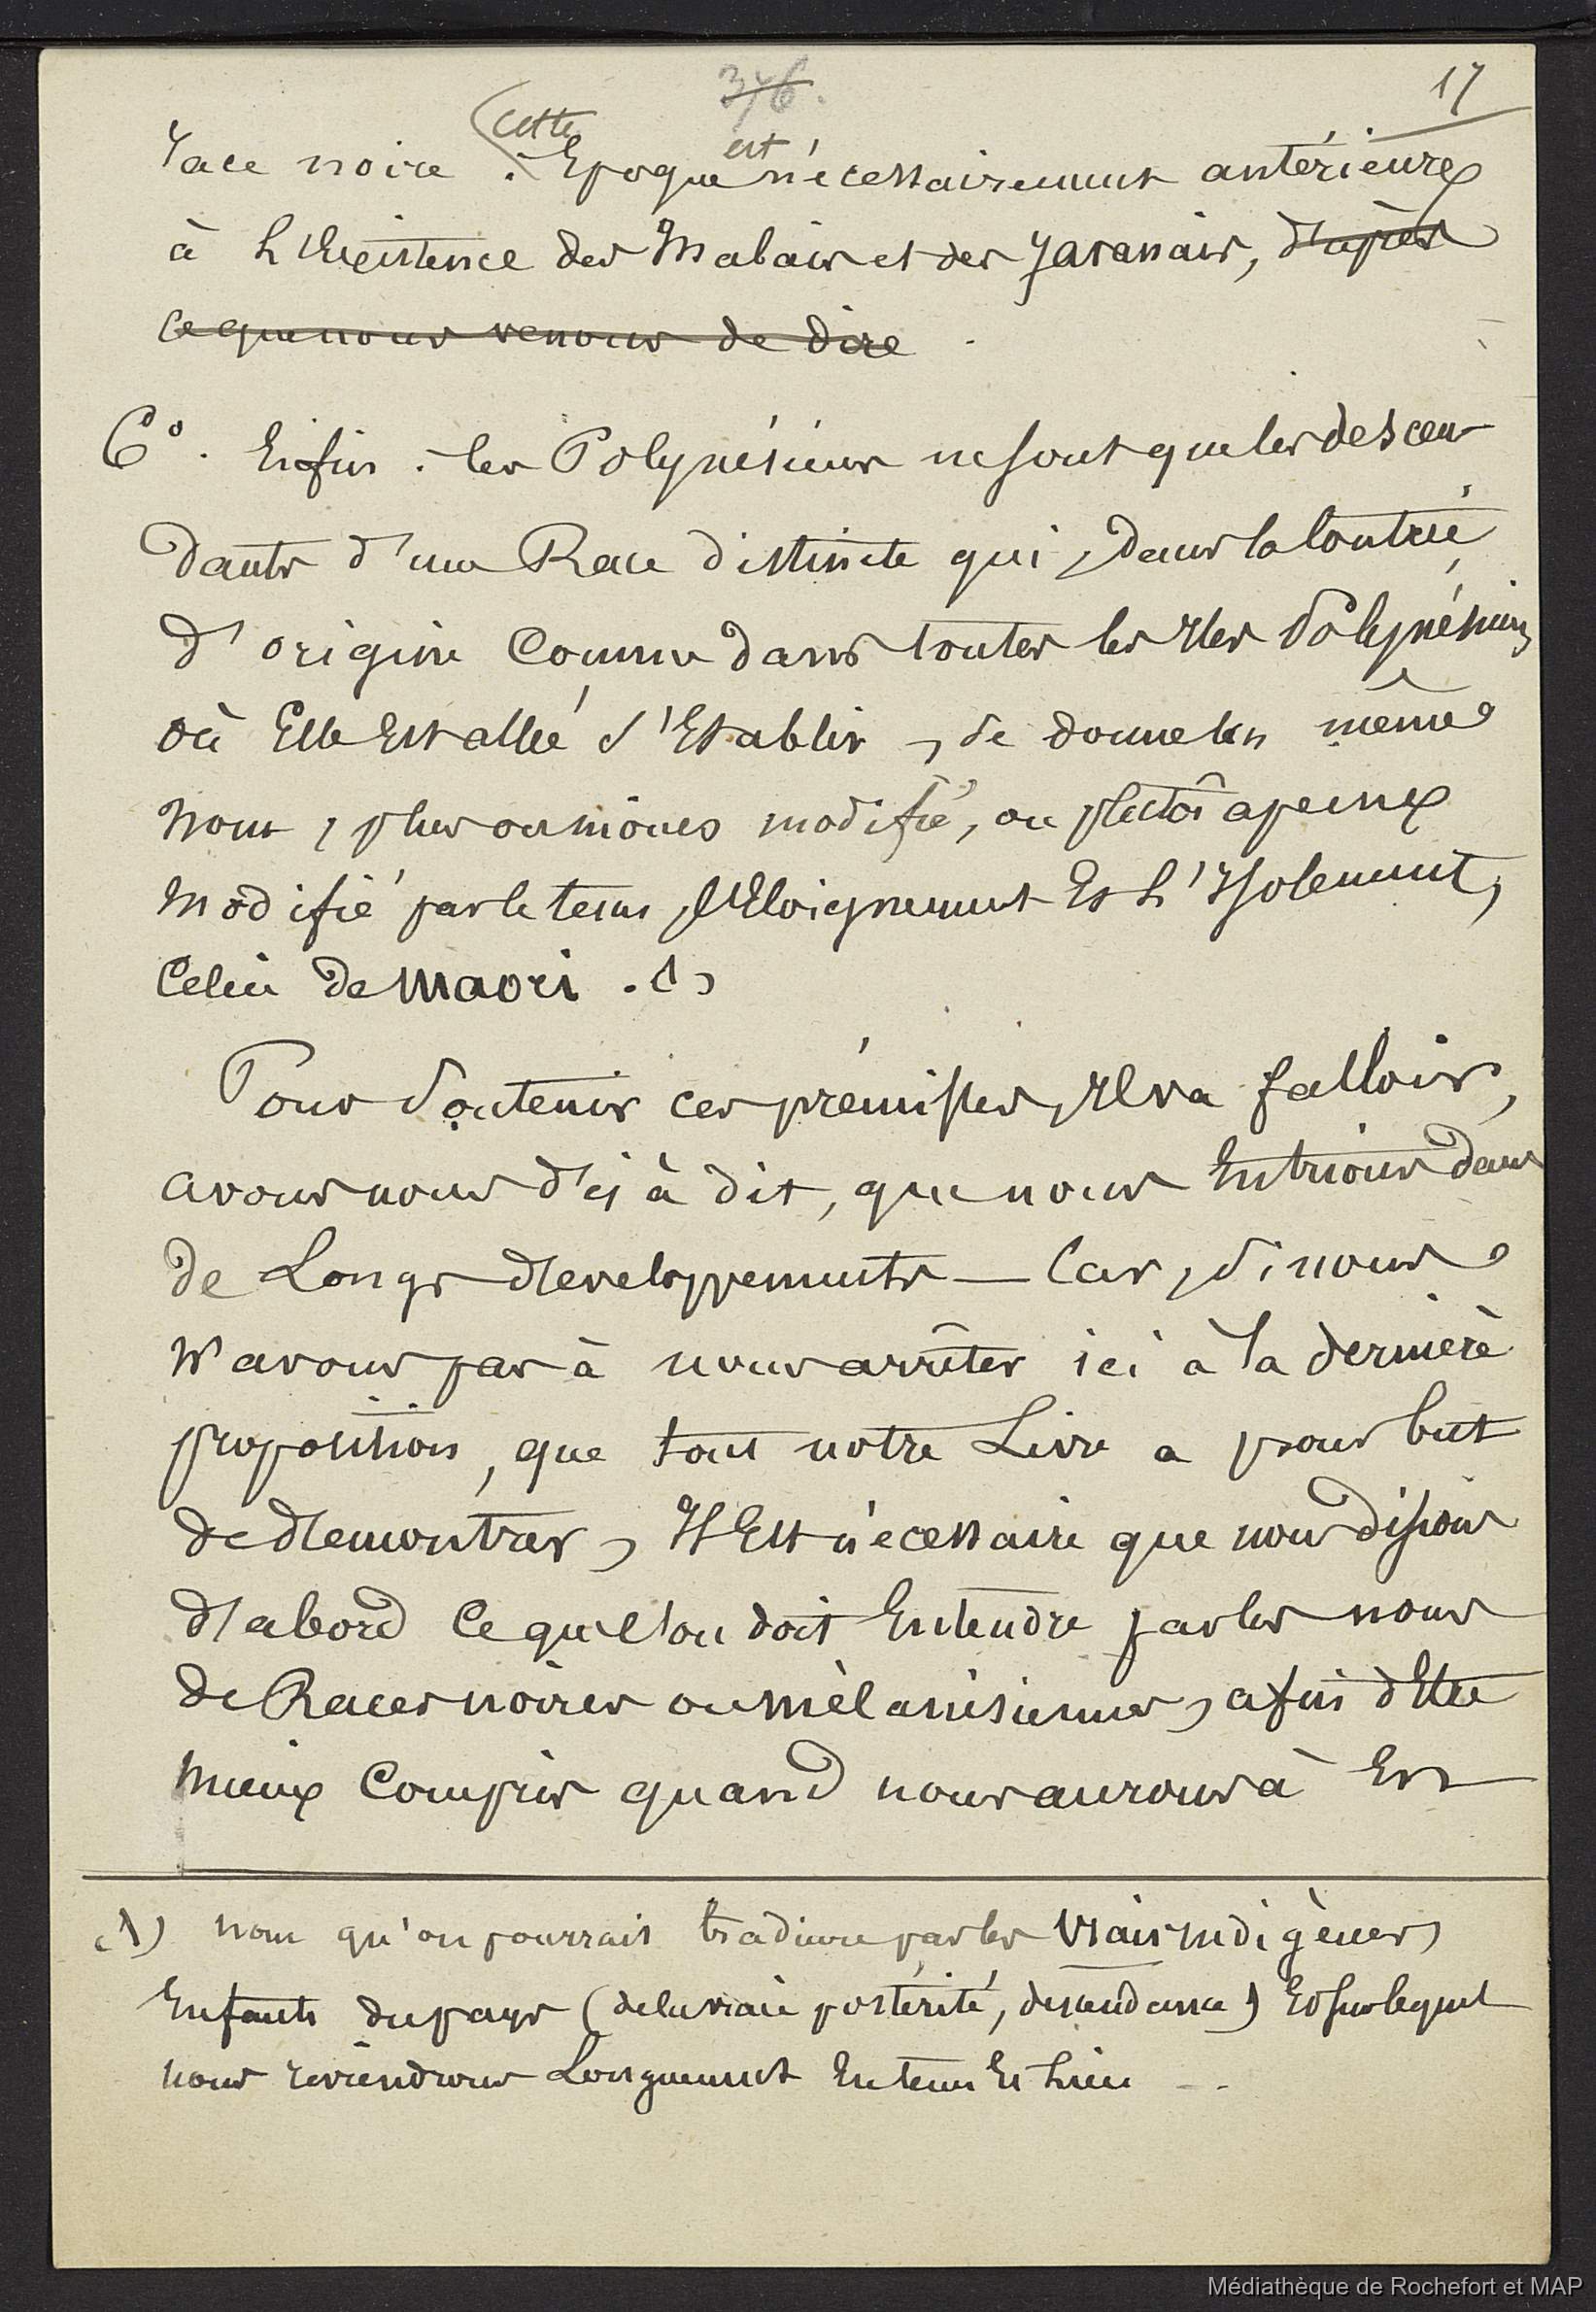 376.
17
(cette
est
race noire : Epoque nécessairement antérieure
à L'Existence des Malais et des Javanais, d'après
ce que nous venons de dire .
6° . Enfin : les Polynésiens ne sont que les descen
dants d'une Race distincte qui, dans la Contrée
d'origine Comme dans toutes les Iles Polynésiennes
où Elle Est allée s'Etablir, se donne le même
nom, plus ou moins modifié, ou plutôt apeine
modifié par le tems, l'Eloignement Et L'Isolement,
Celui de Maori . (1)
Pour Soutenir ces prémisses, Il va falloir,
avons nous déjà dit, que nous Entrions dans
de Longs développements — Car, si nous
n'avons pas à nous arrêter ici à la dernière
proposition, que tout notre Livre a pour but
de démontrer, Il Est nécessaire que nous disions
d'abord Ce que l'on doit Entendre par les noms
de Races noires ou mélanésiennes, afin d'Etre
mieux Compris quand nous aurons à En
(1) nom qu'on pourrait traduire par les vrais Indigènes,
Enfants du pays (de la vraie postérité, descendance) Et sur lequel
nous reviendrons Longuement En tems Et Lieu - .
Médiathèque de Rochefort et MAP